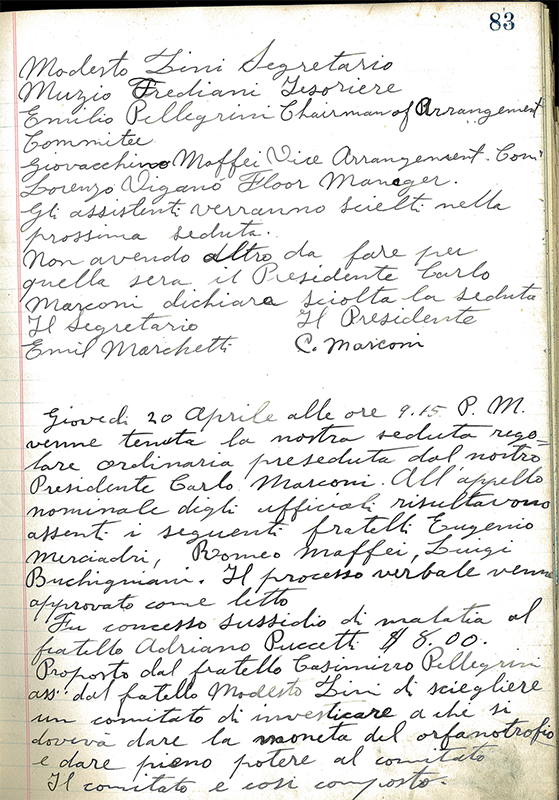 83
Modesto Lini Segretario
Muzio Frediani Tesoriere
Emilio Pellegrini Chairman of Arrangement
Commitee
Giovacchino Maffei Vice Arrangement. Com
Lorenzo Vigano Floor Manager.
Gli assistenti verranno scielti nella
prossima seduta.
Non avendo altro da fare per
quella sera il Presidente Carlo
Marconi dichiara sciolta la seduta
Il Segretario Il Presidente
Emil Marchetti C. Marconi
Giovedi 20 Aprile alle ore 9.15 P. M.
venne tenuta la nostra seduta rego=
lare ordinaria preseduta dal nostro
Presidente Carlo Marconi. All'appello
nominale digli ufficiali risultavono
assenti i seguenti fratelli Eugenio
Merciadri, Romeo Maffei, Luigi
Buchigniani. Il processo verbale venne
approvato come letto
Fu concesso sussidio di malatia al
fratello Adriano Puccetti $ 8.00.
Proposto dal fratello Casimirro Pellegrini
ass. dal fatello Modesto Lini di sciegliere
un comitato di investicare a chi si
dovivà dare la moneta del orfanotrofio
e dare pieno potere al comitato
Il comitato e cosi composto.